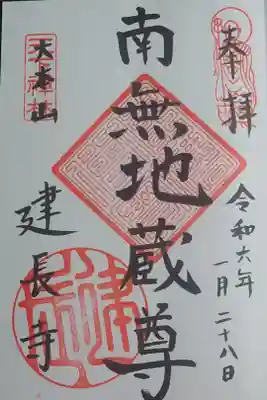 奉拝
令和六年
一月二十八日
南無地蔵尊
大本山
建長寺